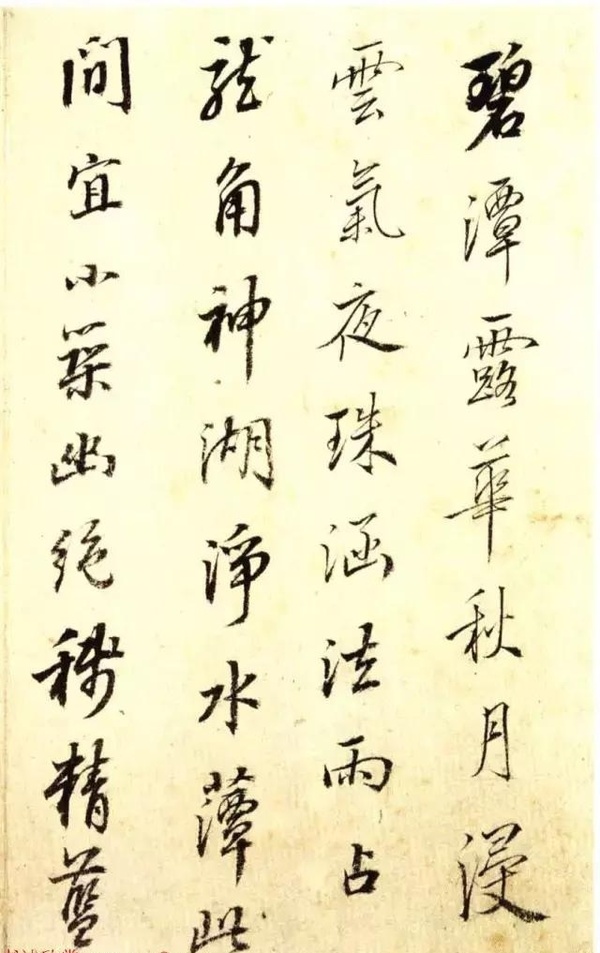 碧潭露華秋月浸
雲氣夜珠涵法雨占
龍角神湖淨水藫此
間宜小築幽絕稱精藍